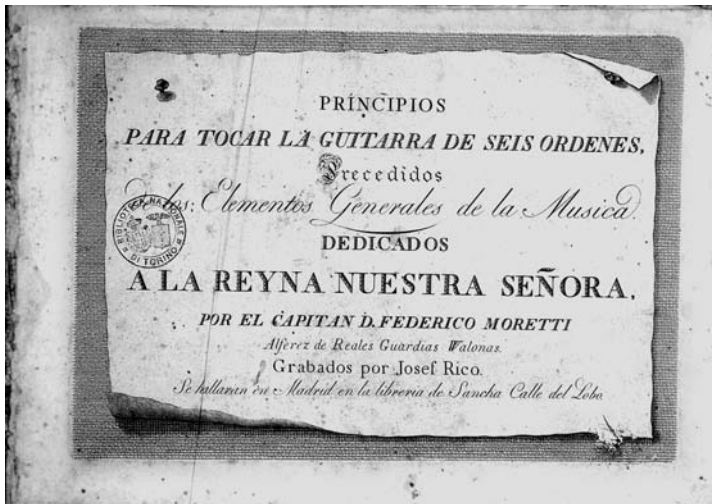 PRINCIPIOS
PARA TOCAR LA GUITARRA DE SEIS ORDENES,
Precedidos
de los Elementos Generales de la Musica.
DEDICADOS
A LA REYNA NUESTRA SEÑORA,
POR EL CAPITAN D. FEDERICO MORETTI
Alferez de Reales Guardias Walonas.
Grabados por Josef Rico.
Se hallaran en Madrid en la libreria de Sancha Calle del Lobo
BIBLIOTECA NAZIONALE
DI TORINO